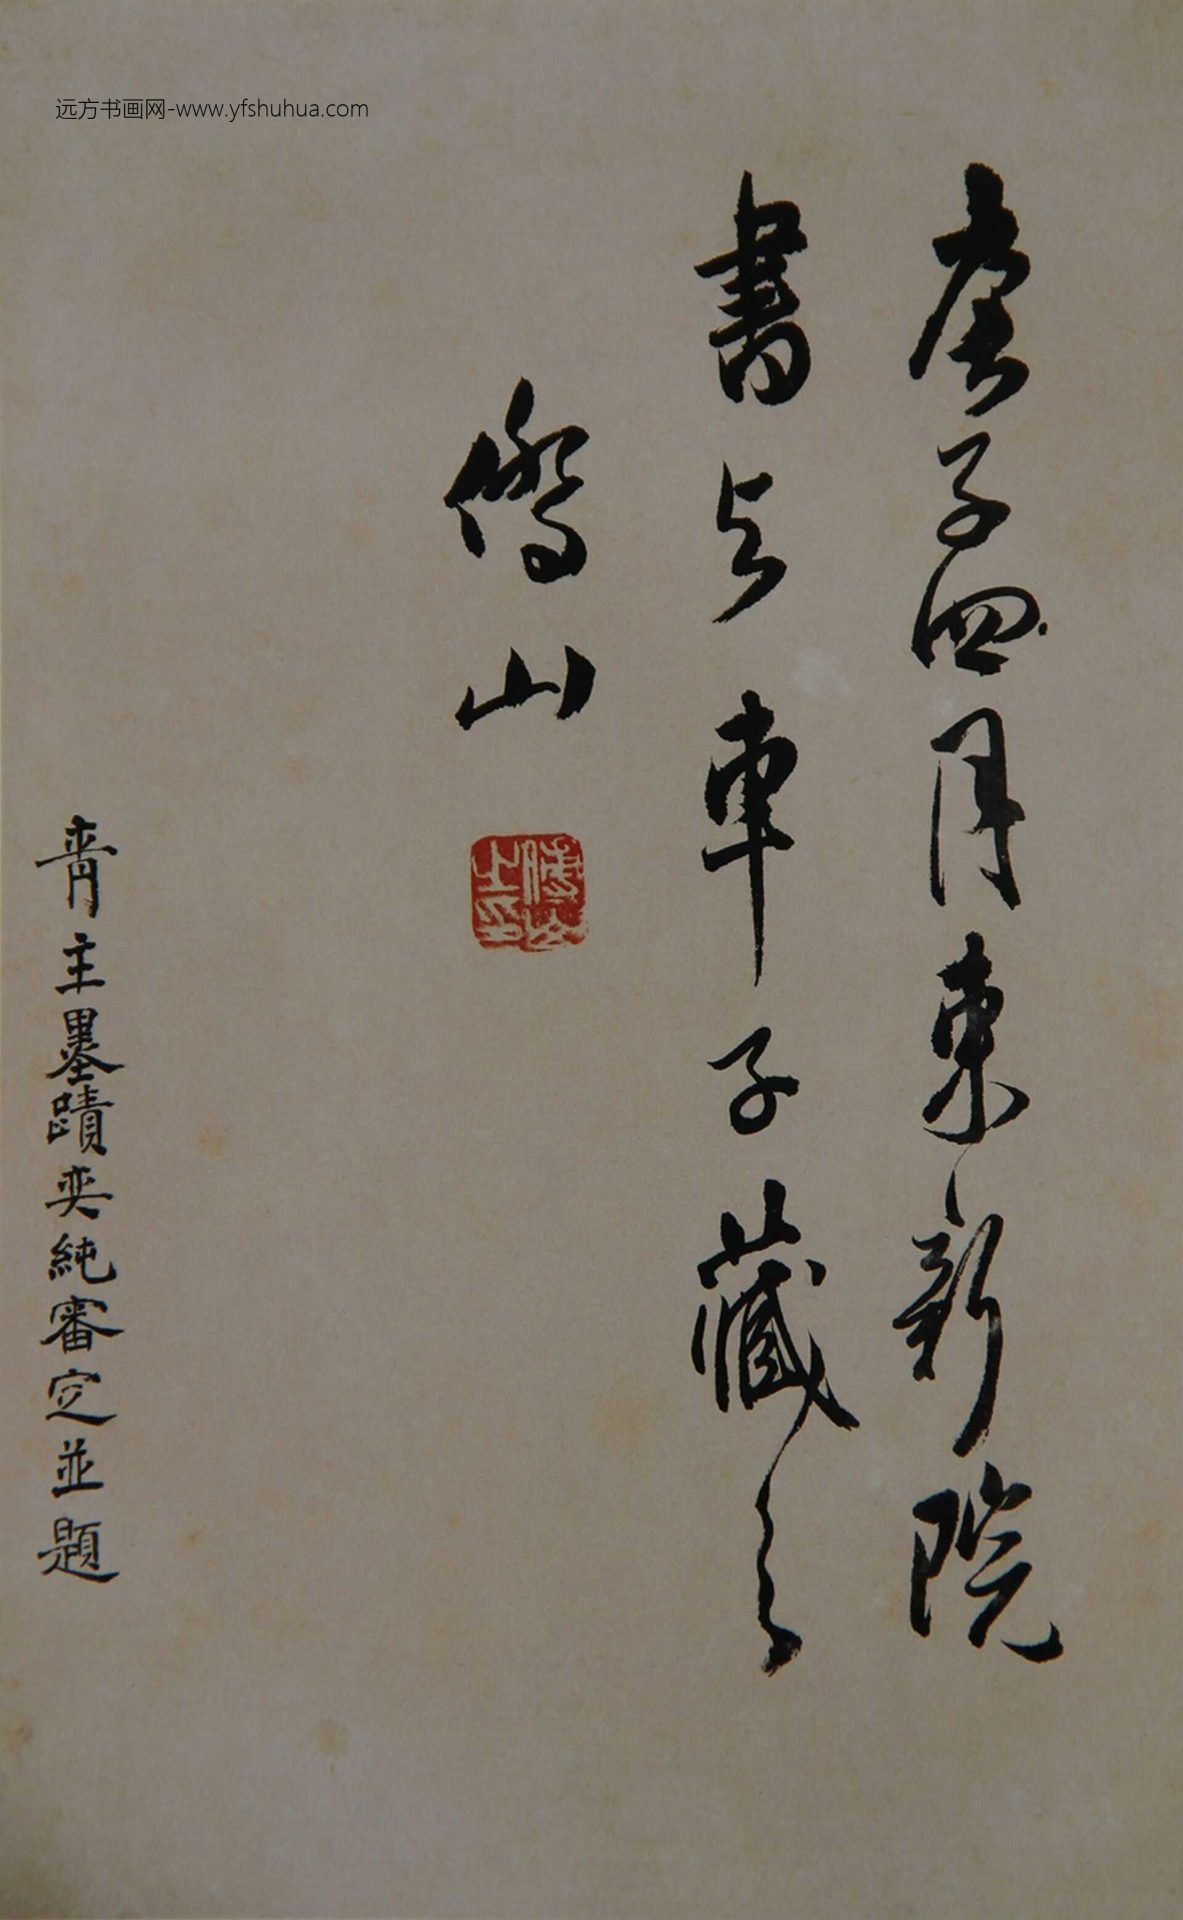 远方书画网-www.yfshuhua.com
庚子四月东新院
書与車子藏之
僑山
青主墨蹟奕純審定並題